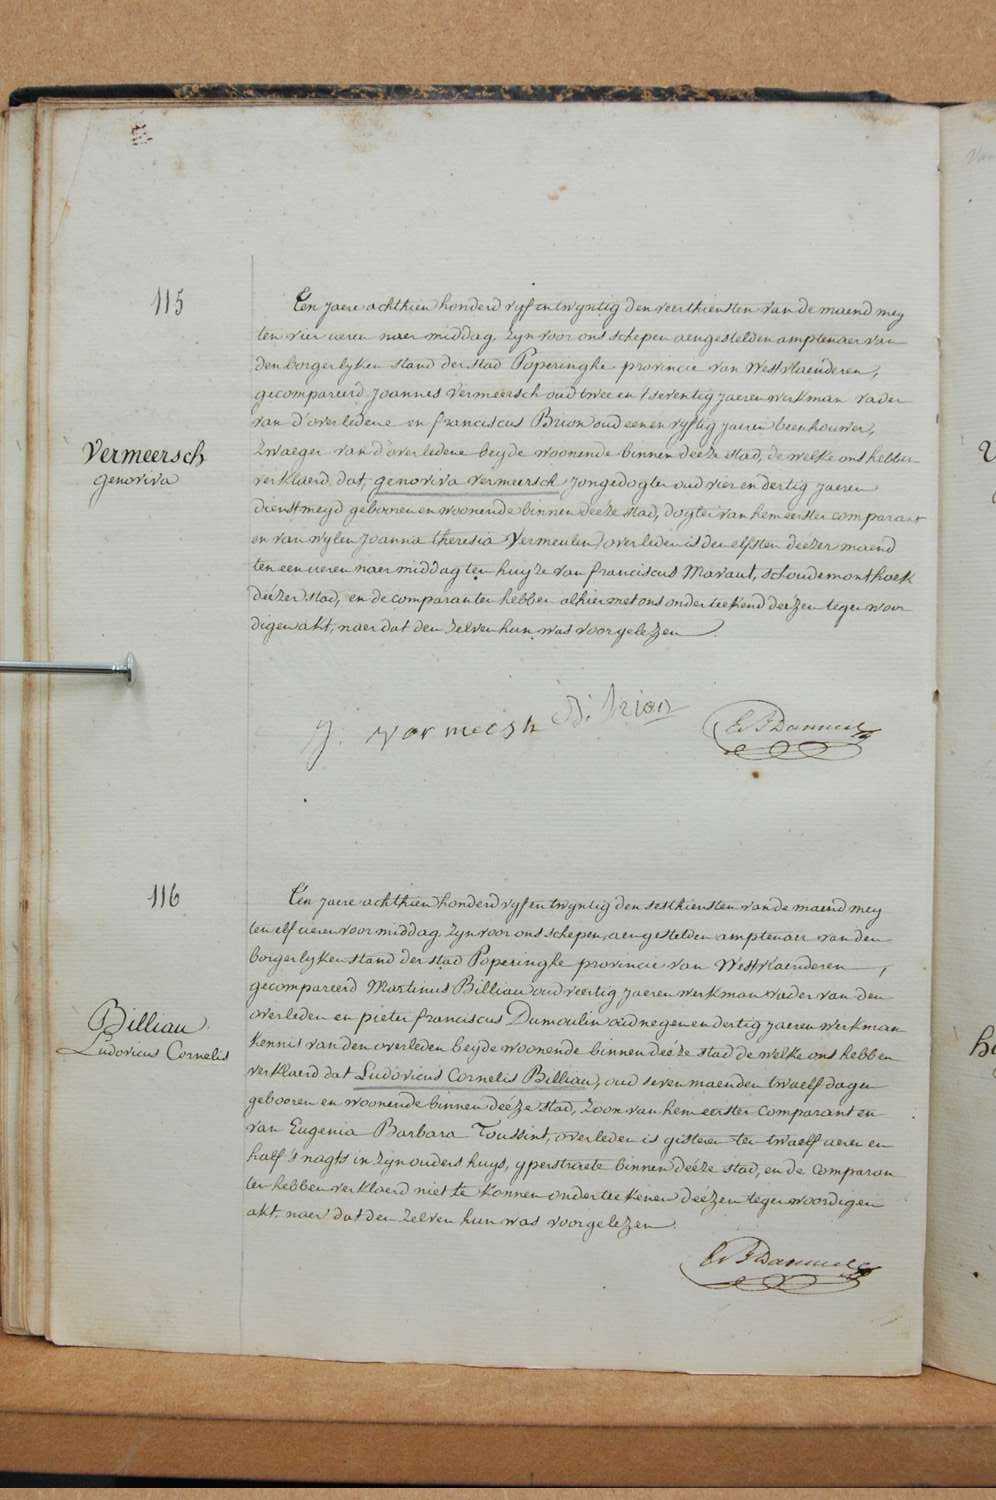 115
Vermeersch
genoviva
Een jaere achthien honderd vyf en twyntig den veerthiensten van de maend mey
ten vier ueren naer middag. Zyn voor ons schepen aengestelden amptenaer van
den borgerlyken stand der stad Poperinghe provincie van Westvlaenderen,
gecompareerd Joannes Vermeersch oud twee en t'seventig jaeren werkman vader
van d'overledene en franciscus Brion oud een en vyftig jaeren beenhouwer,
Zwaeger van d'overledene beyde woonende binnen deéze stad, de welke ons hebben
verklaerd dat, genoviva vermeersch jongedogter oud vier en dertig jaeren
dienstmeyd gebooren en woonende binnen deéze stad, dogter van hem eersten comparant
en van wylen Joanna theresia Vermeulen, overleden is den elfsten deezer maend
ten een ueren naer middag ten huyze van franciscus Maraut, schoudemonthoek
deézer stad, en de comparanten hebben alhier met ons onderteekend deézen tegenwoor
digen akt, naer dat den zelven hun was voorgelezen.
J. vormeesh
B. brion
E V F Dannnel
116
Billiau
Ludovicus Cornelis
Een jaere achthien honderd vyf en twyntig den sesthiensten van de maend mey
ten elf ueren voor middag. Zyn voor ons schepen, aengestelden amptenaer van den
borgerlyken stand der stad Poperinghe provincie van Westvlaenderen,
gecompareerd Martinus Billiau oud veertig jaeren werkman vader van den
overleden en pieter franciscus Dumoulin oud negen en dertig jaeren werkman
kennis van den overleden beyde woonende binnen deéze stad de welke ons hebben
verklaerd dat Ludovicus Cornelis Billiau, oud seven maenden twaelf dagen
gebooren en woonende binnen deéze stad, Zoon van hem eersten comparant en
van Eugenia Barbara Toussint, overleden is gisteren ten twaelf ueren en
half s'nagts in zyn ouders huys, yperstraete binnen deéze stad, en de comparan
ten hebben verklaerd niet te konnen onderteekenen deézen tegenwoordigen
akt, naer dat den zelven hun was voorgelezen.
E V F Dannnel